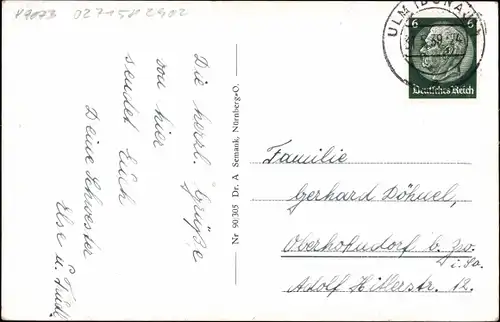 49073 0271582902
ULM (DONAU)
6
Deutsches Reich
Die herzl. Grüße
von hier
sendet Euch
Deine Schwester
Else u.
Nr 90305 Dr. A Semank, Nürnberg-O.
Familie
Gerhard Döhnel,
Oberhohndorf b. Zw.
i. Sa.
Adolf Hitlerstr. 12.